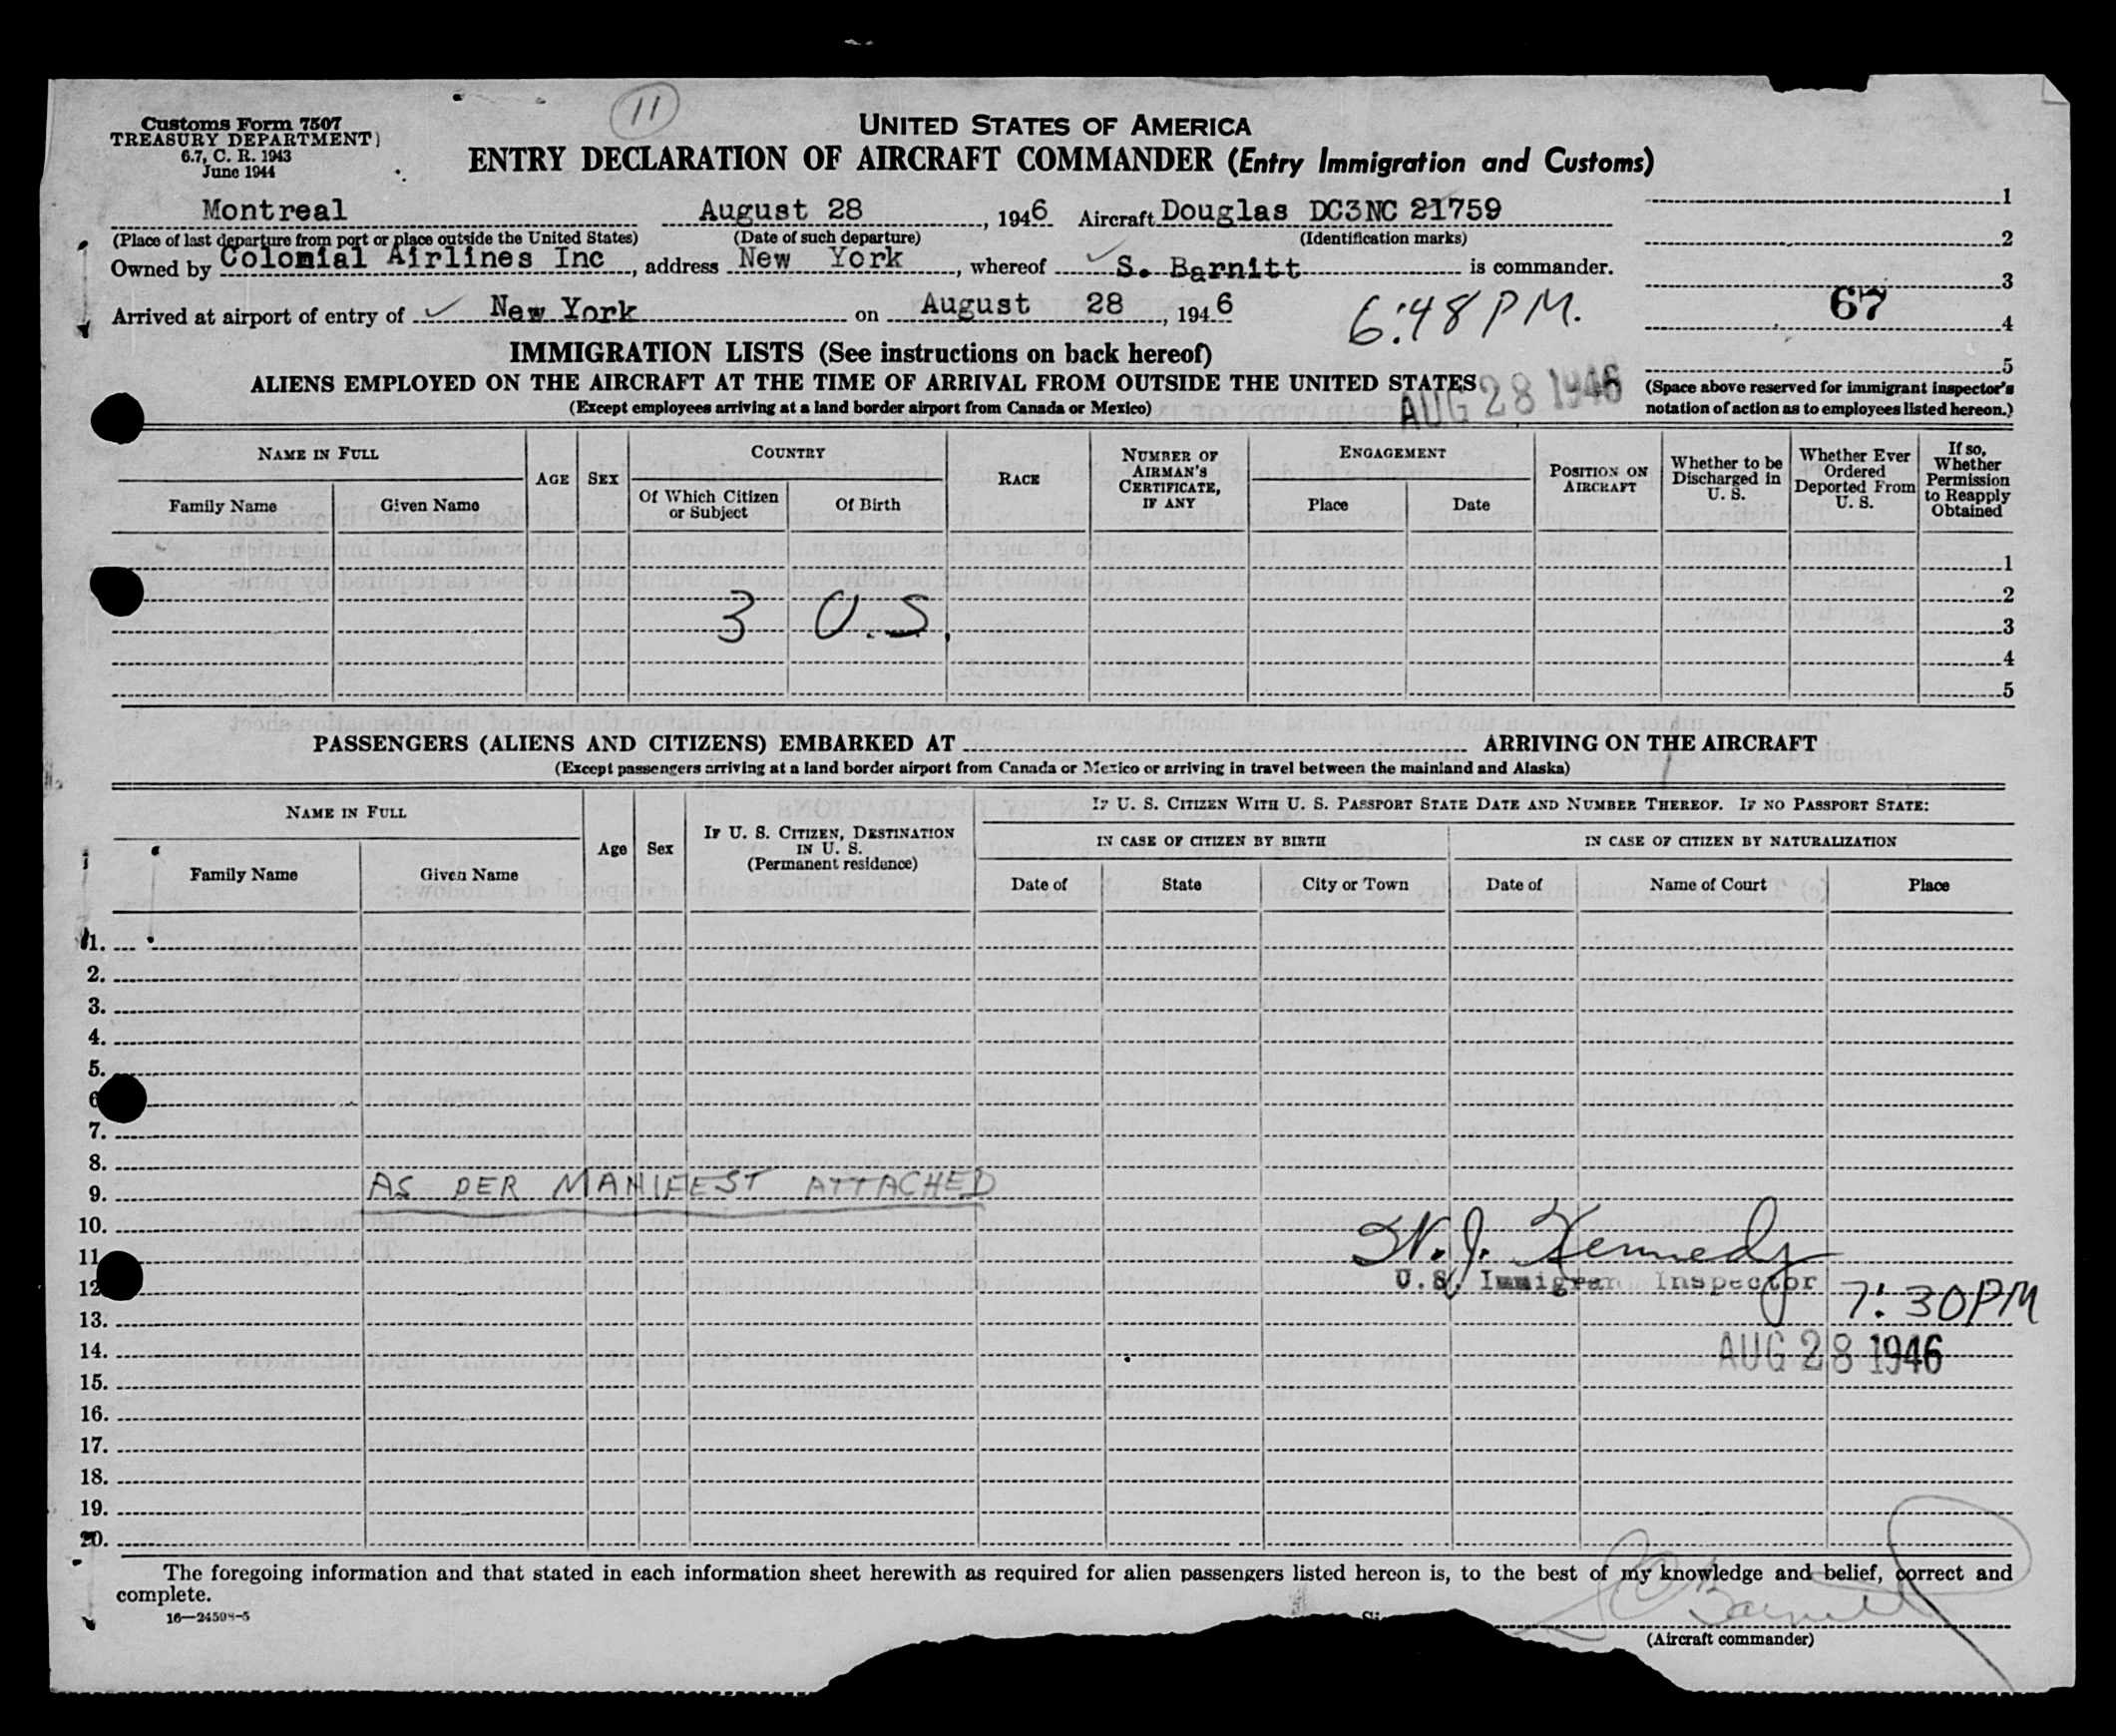 11
Customs Form 7507
TREASURY DEPARTMENT)
6.7, C. R. 1943
June 1944
UNITED STATES OF AMERICA
ENTRY DECLARATION OF AIRCRAFT COMMANDER (Entry Immigration and Customs)
Montreal August 28, 1946 Aircraft Douglas DC3NC 21759 1
(Place of last departure from port or place outside the United States) (Date of such departure) (Identification marks) 2
Owned by Colonial Airlines Inc, address New York, whereof S. Barnitt is commander. 3
Arrived at airport of entry of New York on August 28, 1946 6:48 PM. 67 4
IMMIGRATION LISTS (See instructions on back hereof) 5
ALIENS EMPLOYED ON THE AIRCRAFT AT THE TIME OF ARRIVAL FROM OUTSIDE THE UNITED STATES AUG 28 1946 (Space above reserved for immigrant inspector's
(Except employees arriving at a land border airport from Canada or Mexico) notation of action as to employees listed hereon.)
NAME IN FULL
Family Name
Given Name
AGE
SEX
COUNTRY
Of Which Citizen
or Subject
Of Birth
RACE
NUMBER OF
AIRMAN'S
CERTIFICATE,
IF ANY
ENGAGEMENT
Place
Date
POSITION ON
AIRCRAFT
Whether to be
Discharged in
U. S.
Whether Ever
Ordered
Deported From
U. S.
If so,
Whether
Permission
to Reapply
Obtained
1
2
3 U.S. 3
4
5
PASSENGERS (ALIENS AND CITIZENS) EMBARKED AT ARRIVING ON THE AIRCRAFT
(Except passengers arriving at a land border airport from Canada or Mexico or arriving in travel between the mainland and Alaska)
NAME IN FULL
Family Name
Given Name
Age
Sex
IF U. S. CITIZEN, DESTINATION
IN U. S.
(Permanent residence)
IF U. S. CITIZEN WITH U. S. PASSPORT STATE DATE AND NUMBER THEREOF. IF NO PASSPORT STATE:
IN CASE OF CITIZEN BY BIRTH
Date of
State
City or Town
IN CASE OF CITIZEN BY NATURALIZATION
Date of
Name of Court
Place
1.
2.
3.
4.
5.
6
7.
8.
9. AS PER MANIFEST ATTACHED
10. W. J. Kennedy
11
12 U.S. Immigran Inspector 7:30PM
13.
14. AUG 28 1946
15.
16.
17.
18.
19.
20.
The foregoing information and that stated in each information sheet herewith as required for alien passengers listed hereon is, to the best of my knowledge and belief, correct and
complete.
16—24598-5
Barnitt
(Aircraft commander)